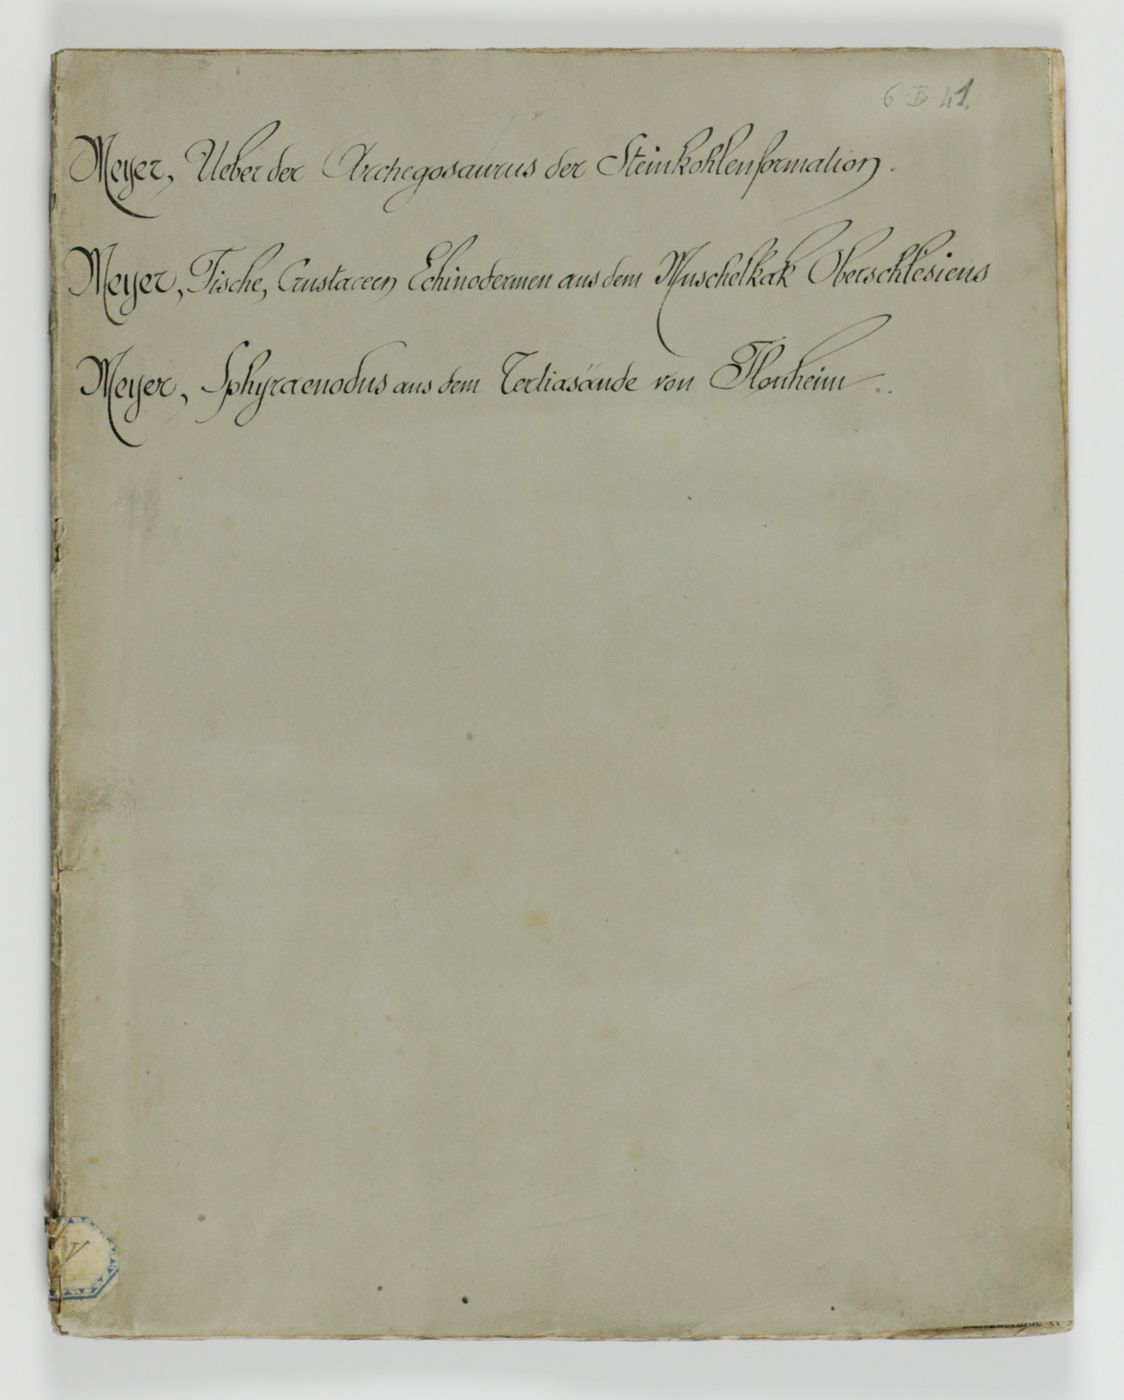 6-B-41.
Meyer, Ueber der Archegosaurus der Steinkohlenformation.
Meyer, Fische, Crustaceen Echinodermen aus dem Muschelkak Oberschlesiens
Meyer, Sphyraenodus aus dem Tertiasände von Flonheim.